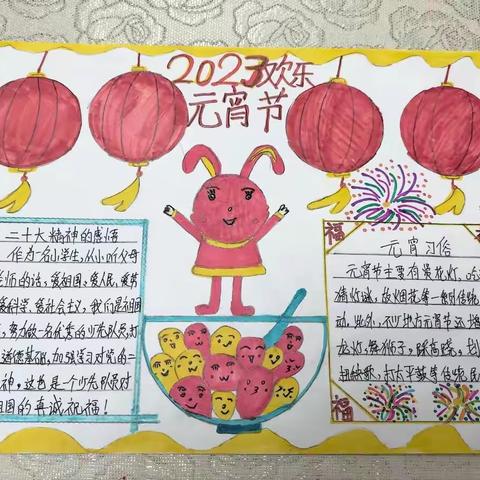 2023欢乐
元宵节
二十大精神的感悟
作为一名小学生,从小听父母
老师的话,爱祖国,爱人民,爱劳
爱科学,爱社会主义,我们是祖国
努力做一名优秀的少先队员,打
道德基础,加强学习对党的二
神,这也是一个少先队员对
祖国的真诚祝福!
福
福
元宵习俗
元宵节主要有赏花灯,吃
猜灯谜,放烟花等一
动,此外,不少地方元宵节还增
龙灯,舞狮子,踩高跷,划
扭秧歌,打太平鼓等传统民
福
福